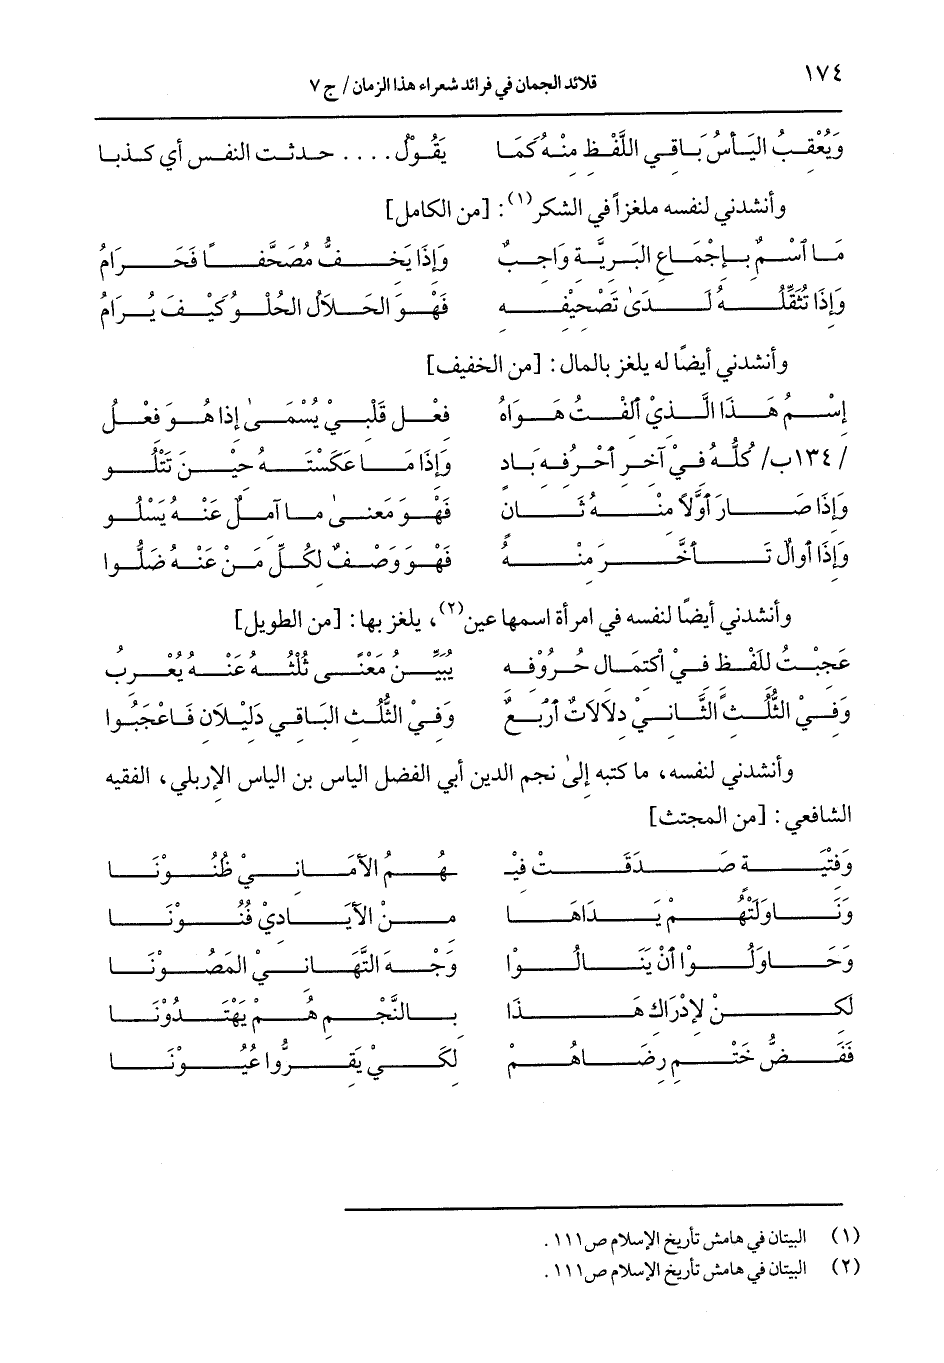 ١٧٤
قلائد الجمان في فرائد شعراء هذا الزمان/ ج ٧
وَيُعْقِبُ اليَأسُ بَاقِي اللَّفْظِ مِنْهُ كَمَا يَقُوْلُ.... حدثت النفس أي كذبا
وأنشدني لنفسه ملغزاً في الشكر(١): [من الكامل]
مَا ٱسْمٌ بِإجْمَاعِ البَرِيَّةِ وَاجِبٌ وَإذَا يَخفُّ مُصَحَّفًا فَحَرَامُ
وَإذَا تُثَقِّلُهُ لَدَىٰ تَصْحِيْفِهِ فَهْوَ الحَلاَلُ الحُلْوُ كَيْفَ يُرَامُ
وأنشدني أيضًا له يلغز بالمال: [من الخفيف]
إسْمُ هَذَا الَّذيْ ألِفْتُ هَوَاهُ فِعْلِ قَلْبِيْ يُسْمَىٰ إذا هُوَ فِعْلُ
/١٣٤ب/ كُلُّهُ فِيْ آخِرِ أحْرُفِهِ بَادٍ وَإذَا مَا عَكَسْتَهُ حِيْنَ تَتْلُو
وَإذَا صَارَ أوَّلاً مِنْهُ ثَانٍ فَهْوَ مَعنىٰ ما آمِلٌ عَنْهُ يَسْلُو
وَإذَا أوالٌ تَأخَّرَ مِنْهُ فَهْوَ وَصْفٌ لِكُلِّ مَنْ عَنْهُ ضَلُّوا
وأنشدني أيضًا لنفسه في امرأة اسمها عين(٢)، يلغز بها: [من الطويل]
عَجِبْتُ لِلَفْظٍ فِيْ ٱكْتِمَالِ حُرُوْفِهِ يُبَيِّنُ مَعْنًى ثُلْثُهُ عَنْهُ يُعْرِبُ
وَفِيْ الثُّلُثِ الثَّانِيْ دِلاَلاَتٌ أرْبَعٌ وَفِيْ الثُّلثِ البَاقِي دَلِيْلاَنِ فَاعْجَبُوا
وأنشدني لنفسه، ما كتبه إلىٰ نجم الدين أبي الفضل الياس بن الياس الإربلي، الفقيه
الشافعي: [من المجتث]
وَفِتْيَةٍ صَدَقَتْ فِيْـ ـهُمُ الأمَانِيْ ظُنُوْنَا
وَنَاوَلَتْهُمْ يَدَاهَا مِنْ الأيَادِيْ فُنُوْنَا
وَحَاوَلُوْا أنْ يَنَالُوْا وَجْهَ التَّهَانِيْ المَصُوْنَا
لَكِنْ لإدْرَاكِ هَذَا بِالنَّجْمِ هُمْ يَهْتَدُوْنَا
فَفَضُّ خَتْمِ رِضَاهُمْ لِكَيْ يَقَرُّوا عُيُوْنَا
(١) البيتان في هامش تأريخ الإسلام ص١١١.
(٢) البيتان في هامش تأريخ الإسلام ص١١١.